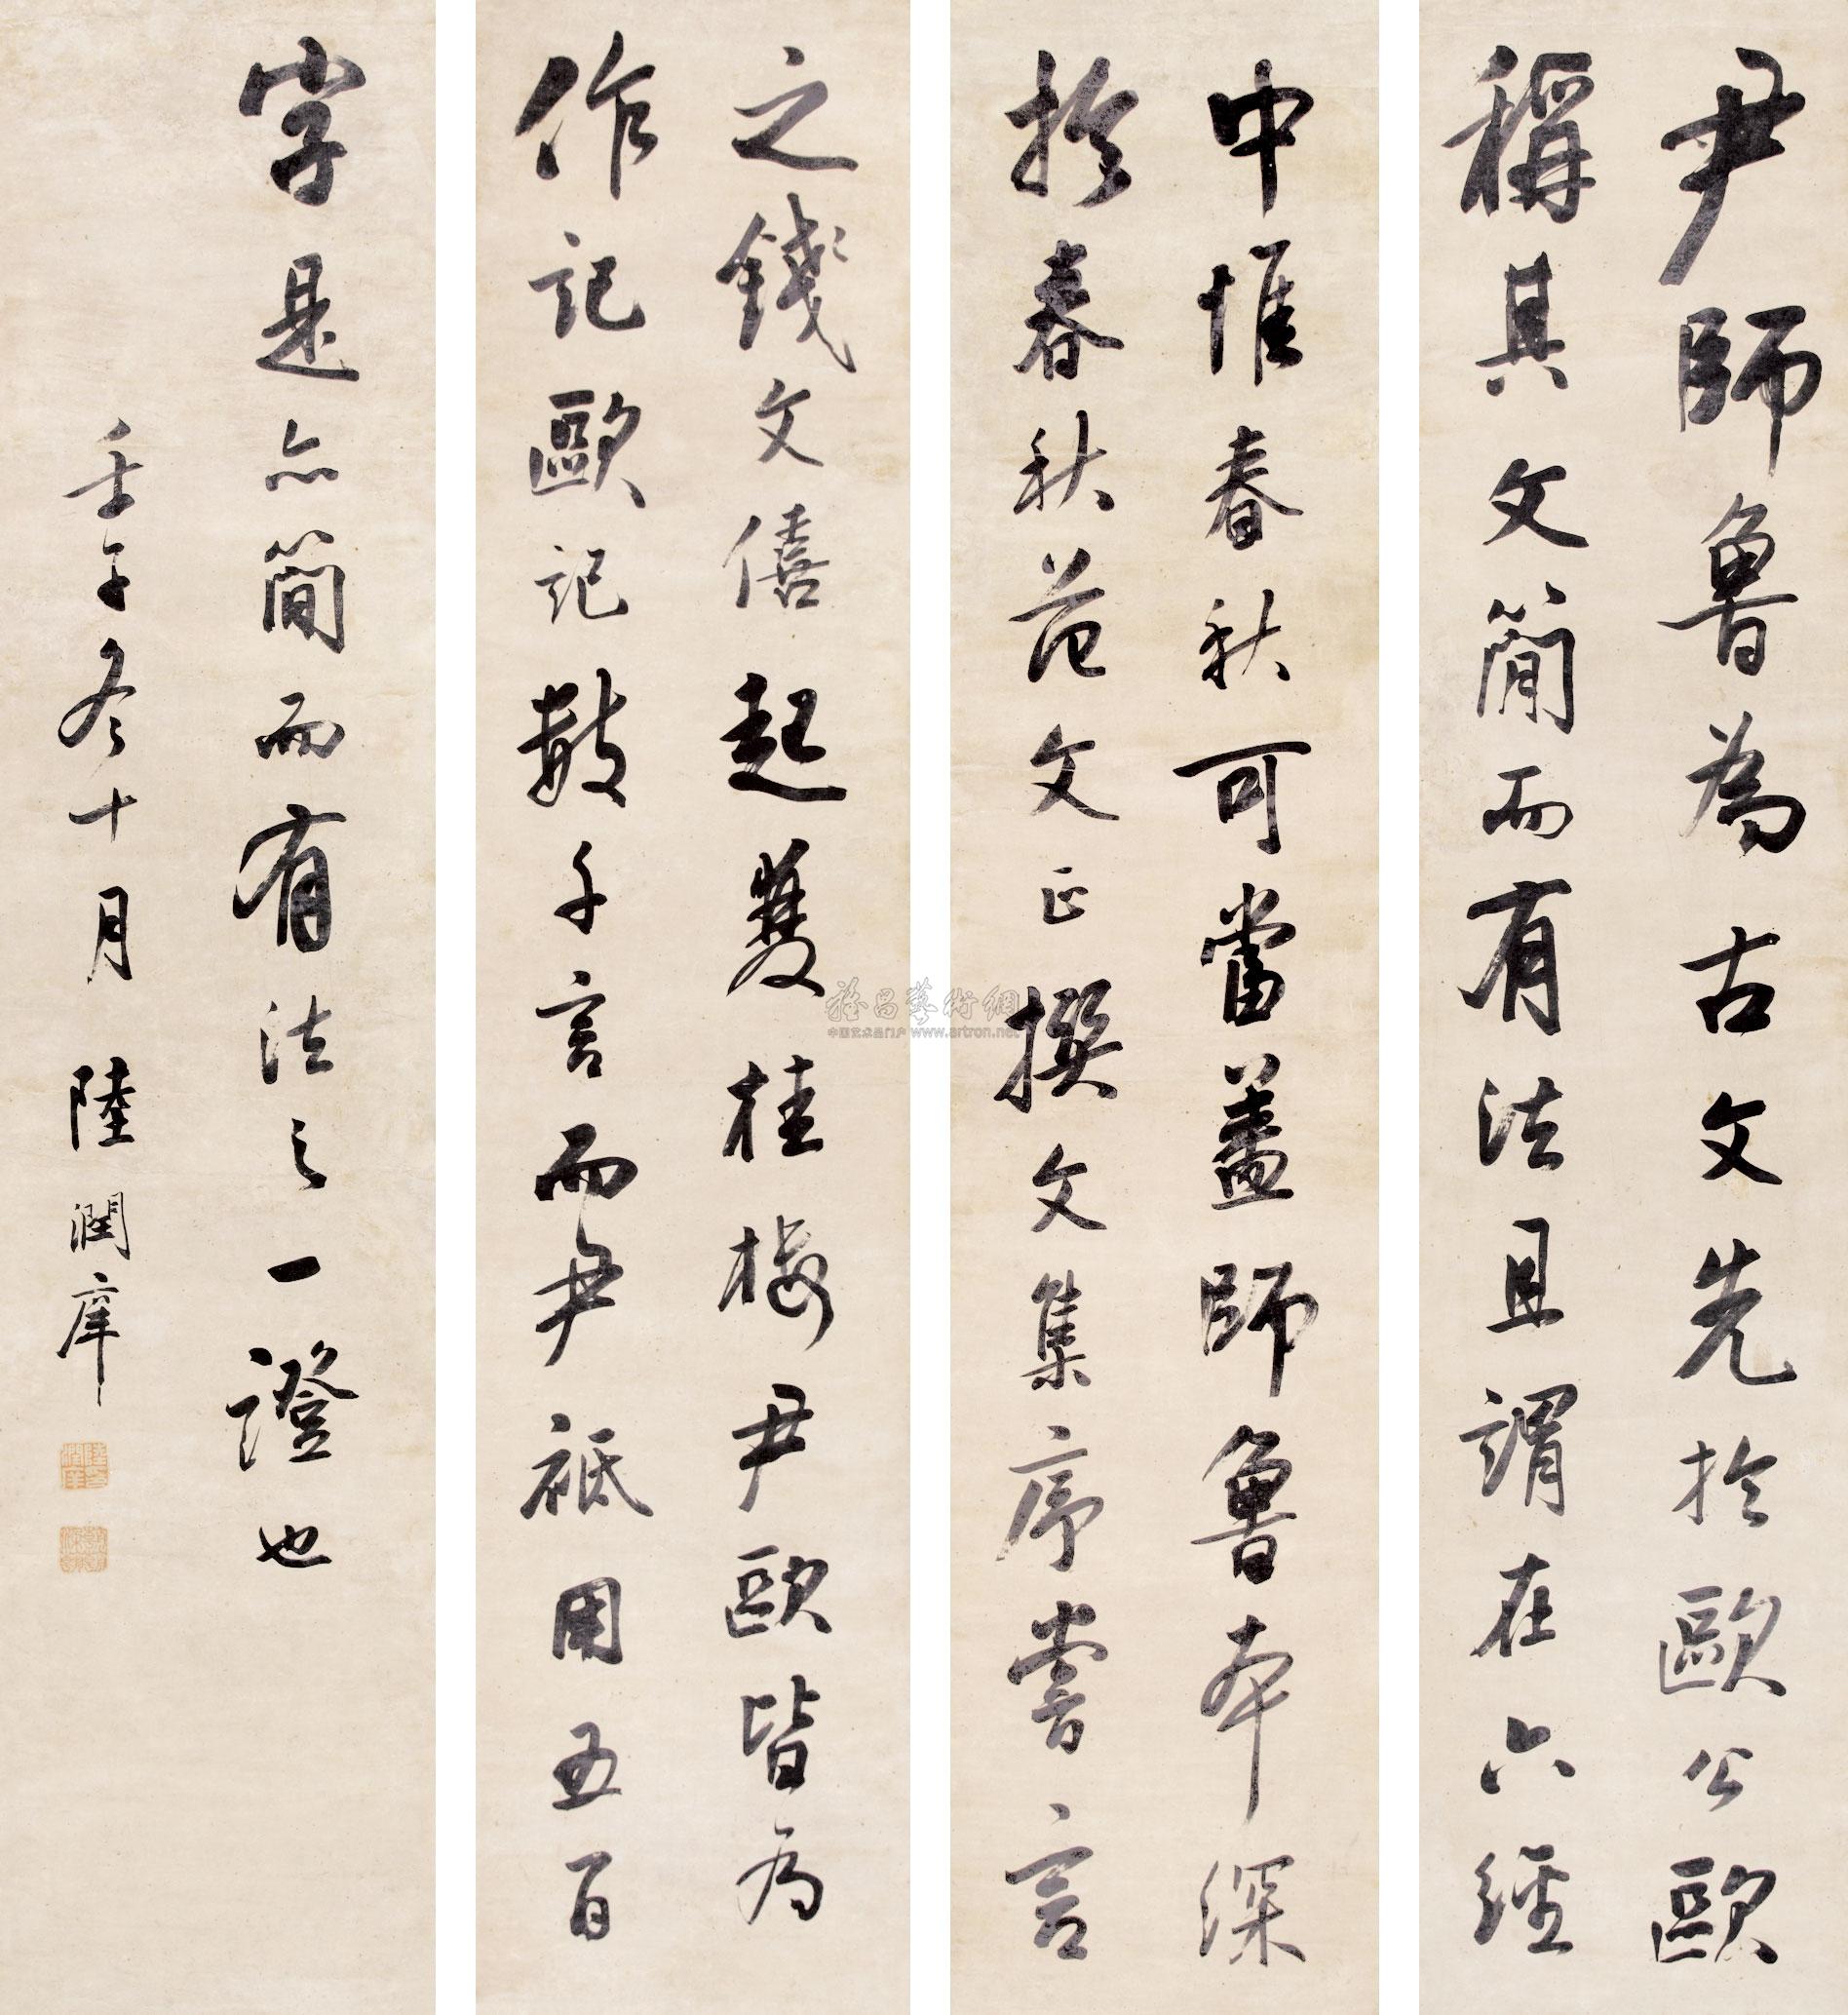 尹師魯為古文先於歐公歐
稱其文簡而有法且謂在六經
中惟春秋可當蓋師魯本深
於春秋范文正撰文集序嘗言
之錢文僖起雙桂樓尹歐皆為
作記歐記數千言而尹祗用五百
字是亦簡而有法之一證也
壬子冬十月 陸潤庠
雅昌藝術網
中国艺术品门户 www.artron.net